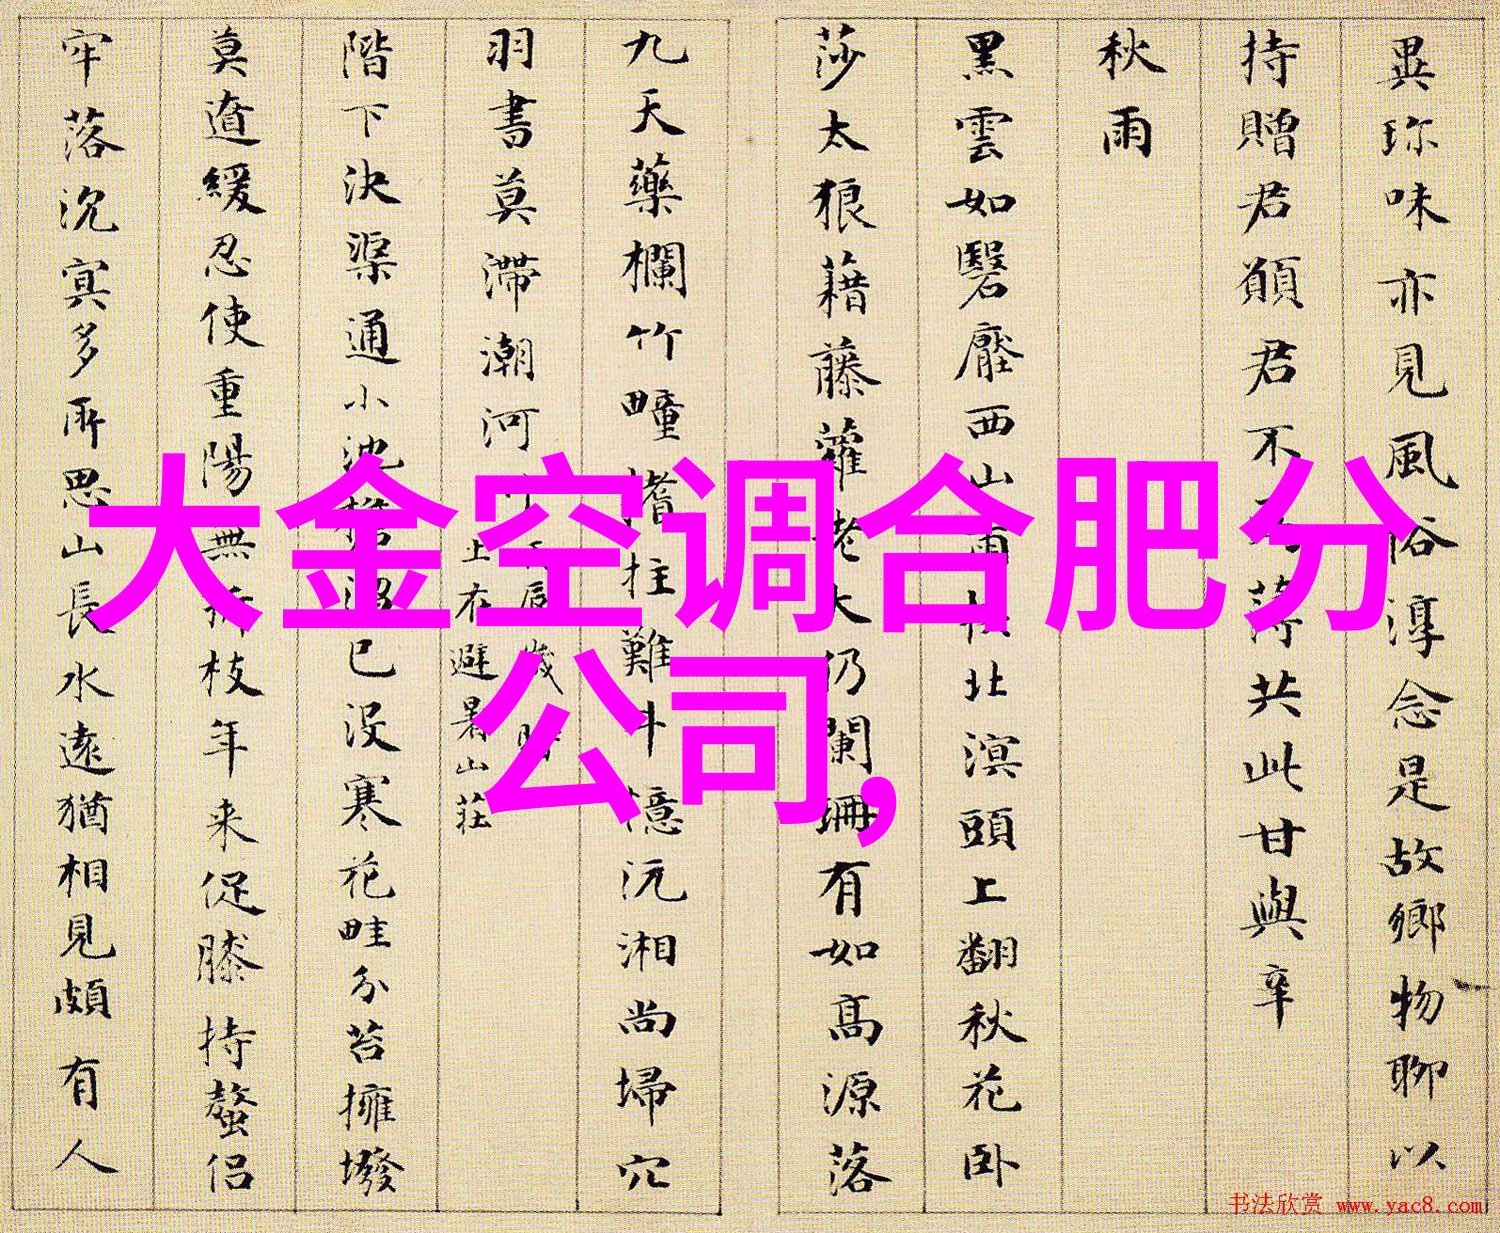 異珎味亦見風俗淳念是故鄉物聊以
持贈君願君不
薄共此甘與辛
秋雨
黑雲如毉壓西山雨
北溟頭上翻秋花卧
莎太狼藉藤蘿老大仍闌珊有如高源落
九天藥欄竹疃
拄難
憶沅湘尚埽穴
羽書莫滯潮河
土在避暑山莊
階下決渠通小池
已没寒花畦分苔擁撥
莫遒緩忍使重陽無折枝年来促膝持螯侣
牢落沉冥多所思山長水遠猶相見頗有人
大金空调合肥分
公司,
书法欣赏 www.yac8.com